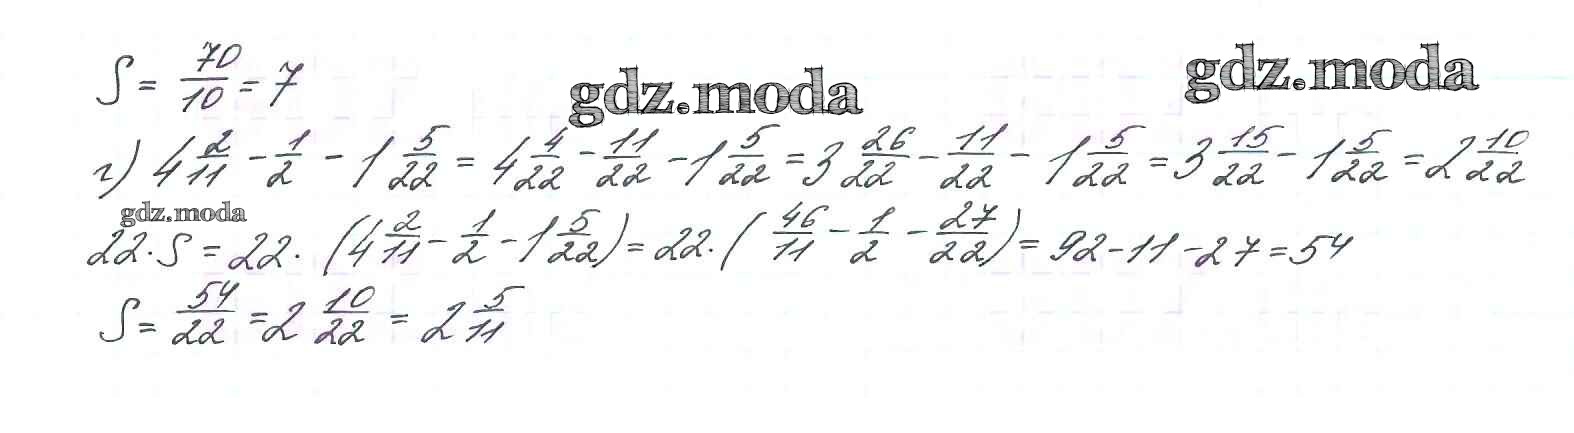 S = 70/10 = 7
gdz.moda
gdz.moda
г) 4 2/11 - 1/2 - 1 5/22 = 4 4/22 - 11/22 - 1 5/22 = 3 26/22 - 11/22 - 1 5/22 = 3 15/22 - 1 5/22 = 2 10/22
gdz.moda
22·S = 22·(4 2/11 - 1/2 - 1 5/22) = 22·(46/11 - 1/2 - 27/22) = 92 - 11 - 27 = 54
S = 54/22 = 2 10/22 = 2 5/11